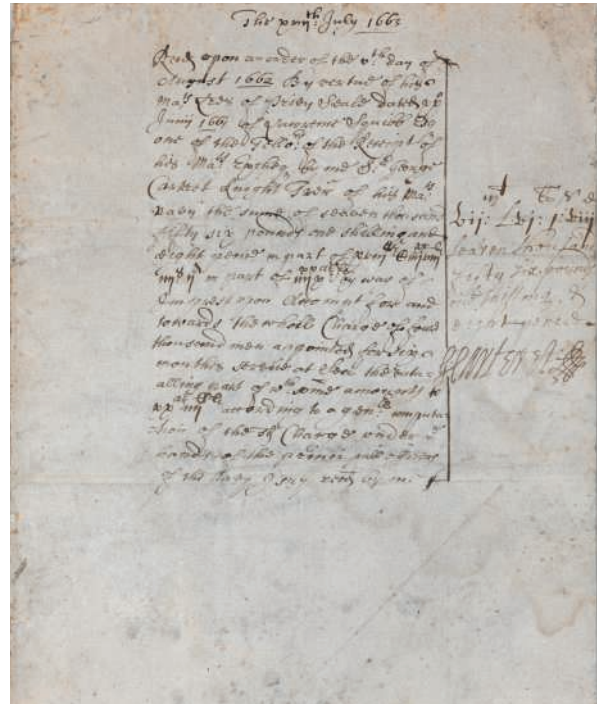 The xviijth: July 1663
Recd upon an order of the vth day of
August 1662 By vertue of his
Mats Lres of Privy Seale dated
Junij 1661 of Squibb Esqr
one of the Tellors of the Receipt of
his Mats Excheqr by me Sr George
Carteret Knight Trer of his Mats
Navy the sume of seaven thousand
fifty six pounds one shilling and
eight pence in part of
in part of by way of
Imprest upon Accompt for and
towards the whole Charge of four
thousand men appointed for
months service at Sea the
alling part of wch some amounts to
according to a genll computa
tion of the sd Charge under ye
hands of the princi: pall officers
of the Navy I say recd by me
vij: Lvj: j: viij
seaven thousand
fifty six pounds
one shilling &
eight pence
G Carteret